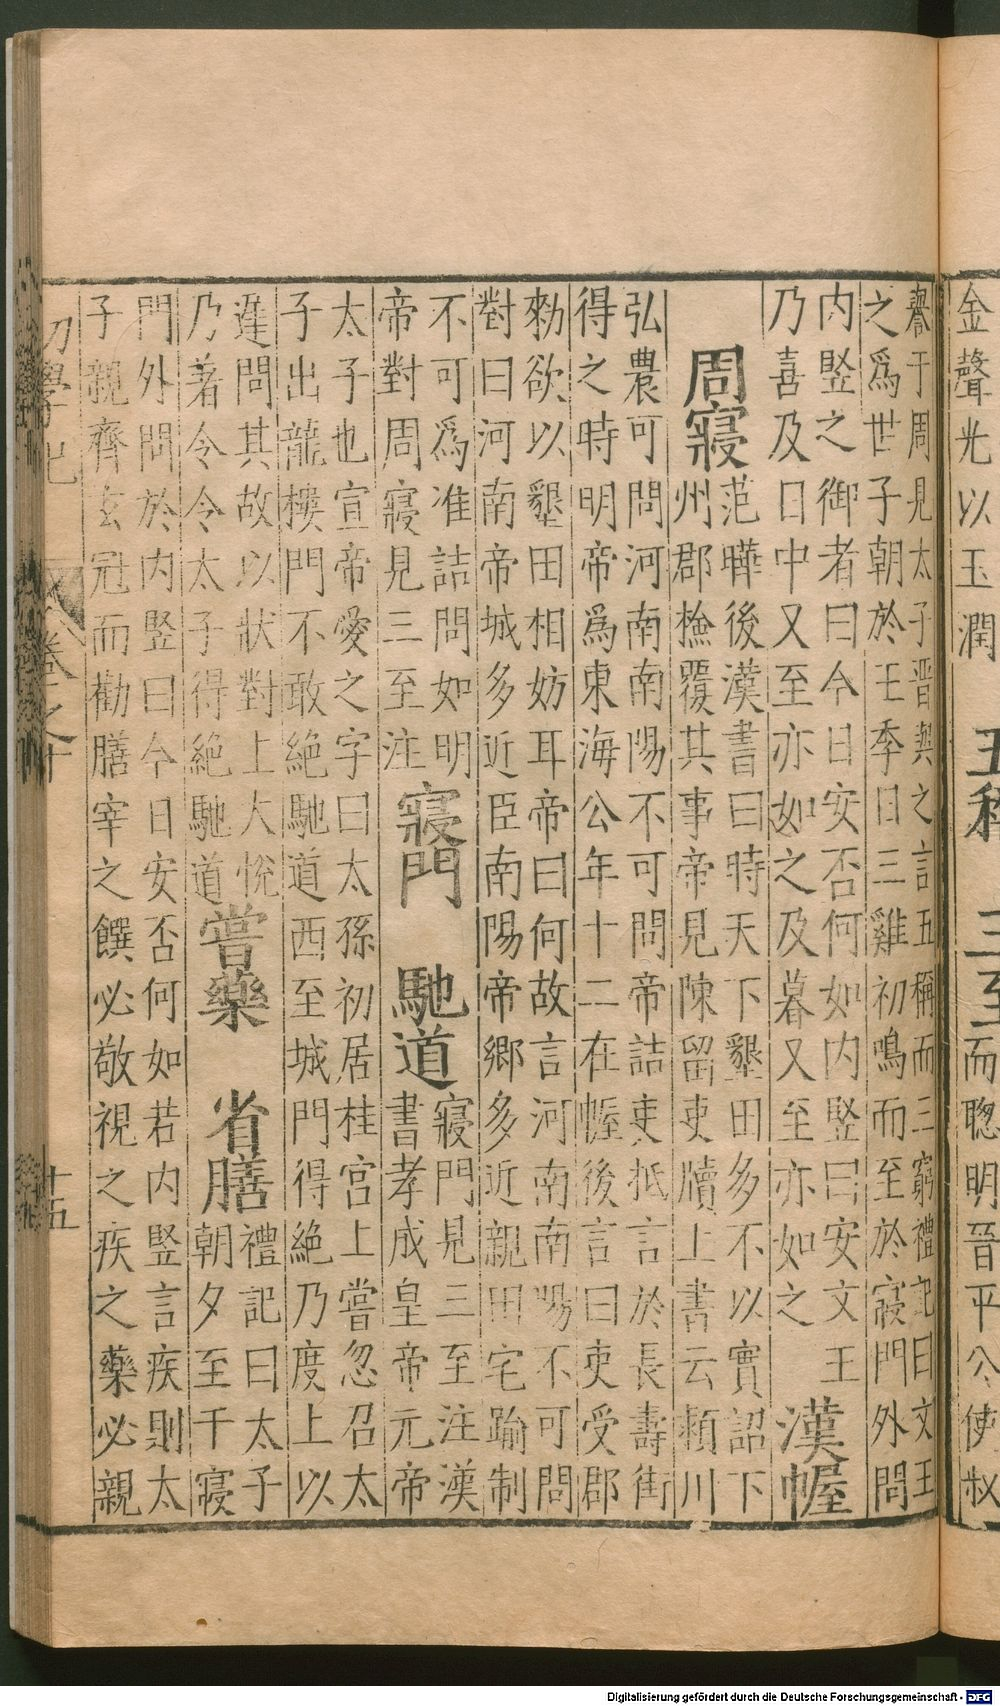 金聲光以玉潤
三至而聰明晉平公使叔
譽于周見太子晋與之言五稱而三窮禮記曰文王
之爲世子朝於王季日三雞初鳴而至於寢門外問
内竪之御者曰今日安否何如内竪曰安文王
乃喜及日中又至亦如之及暮又至亦如之
漢幄
周寢
范曄後漢書曰時天下墾田多不以實詔下
州郡檢覆其事帝見陳留吏牘上書云頴川
弘農可問河南南陽不可問帝詰吏抵言於長壽街
得之時明帝爲東海公年十二在幄後言曰吏受郡
勑欲以墾田相妨耳帝曰何故言河南南陽不可問
對曰河南帝城多近臣南陽帝鄉多近親田宅踰制
不可爲准詰問如明
帝對周寢見三至注
寢門
馳道
寢門見三至注漢
書孝成皇帝元帝
太子也宣帝愛之字曰太孫初居桂宮上嘗忽召太
子出龍樓門不敢絶馳道西至城門得絶乃度上以
遲問其故以狀對上大悅
乃著令令太子得絶馳道
嘗藥
省膳
禮記曰太子
朝夕至于寢
門外問於内竪曰今日安否何如若内竪言疾則太
子親齊玄冠而勸膳宰之饌必敬視之疾之藥必親
卷之十
十五
Digitalisierung gefördert durch die Deutsche Forschungsgemeinschaft - DFG